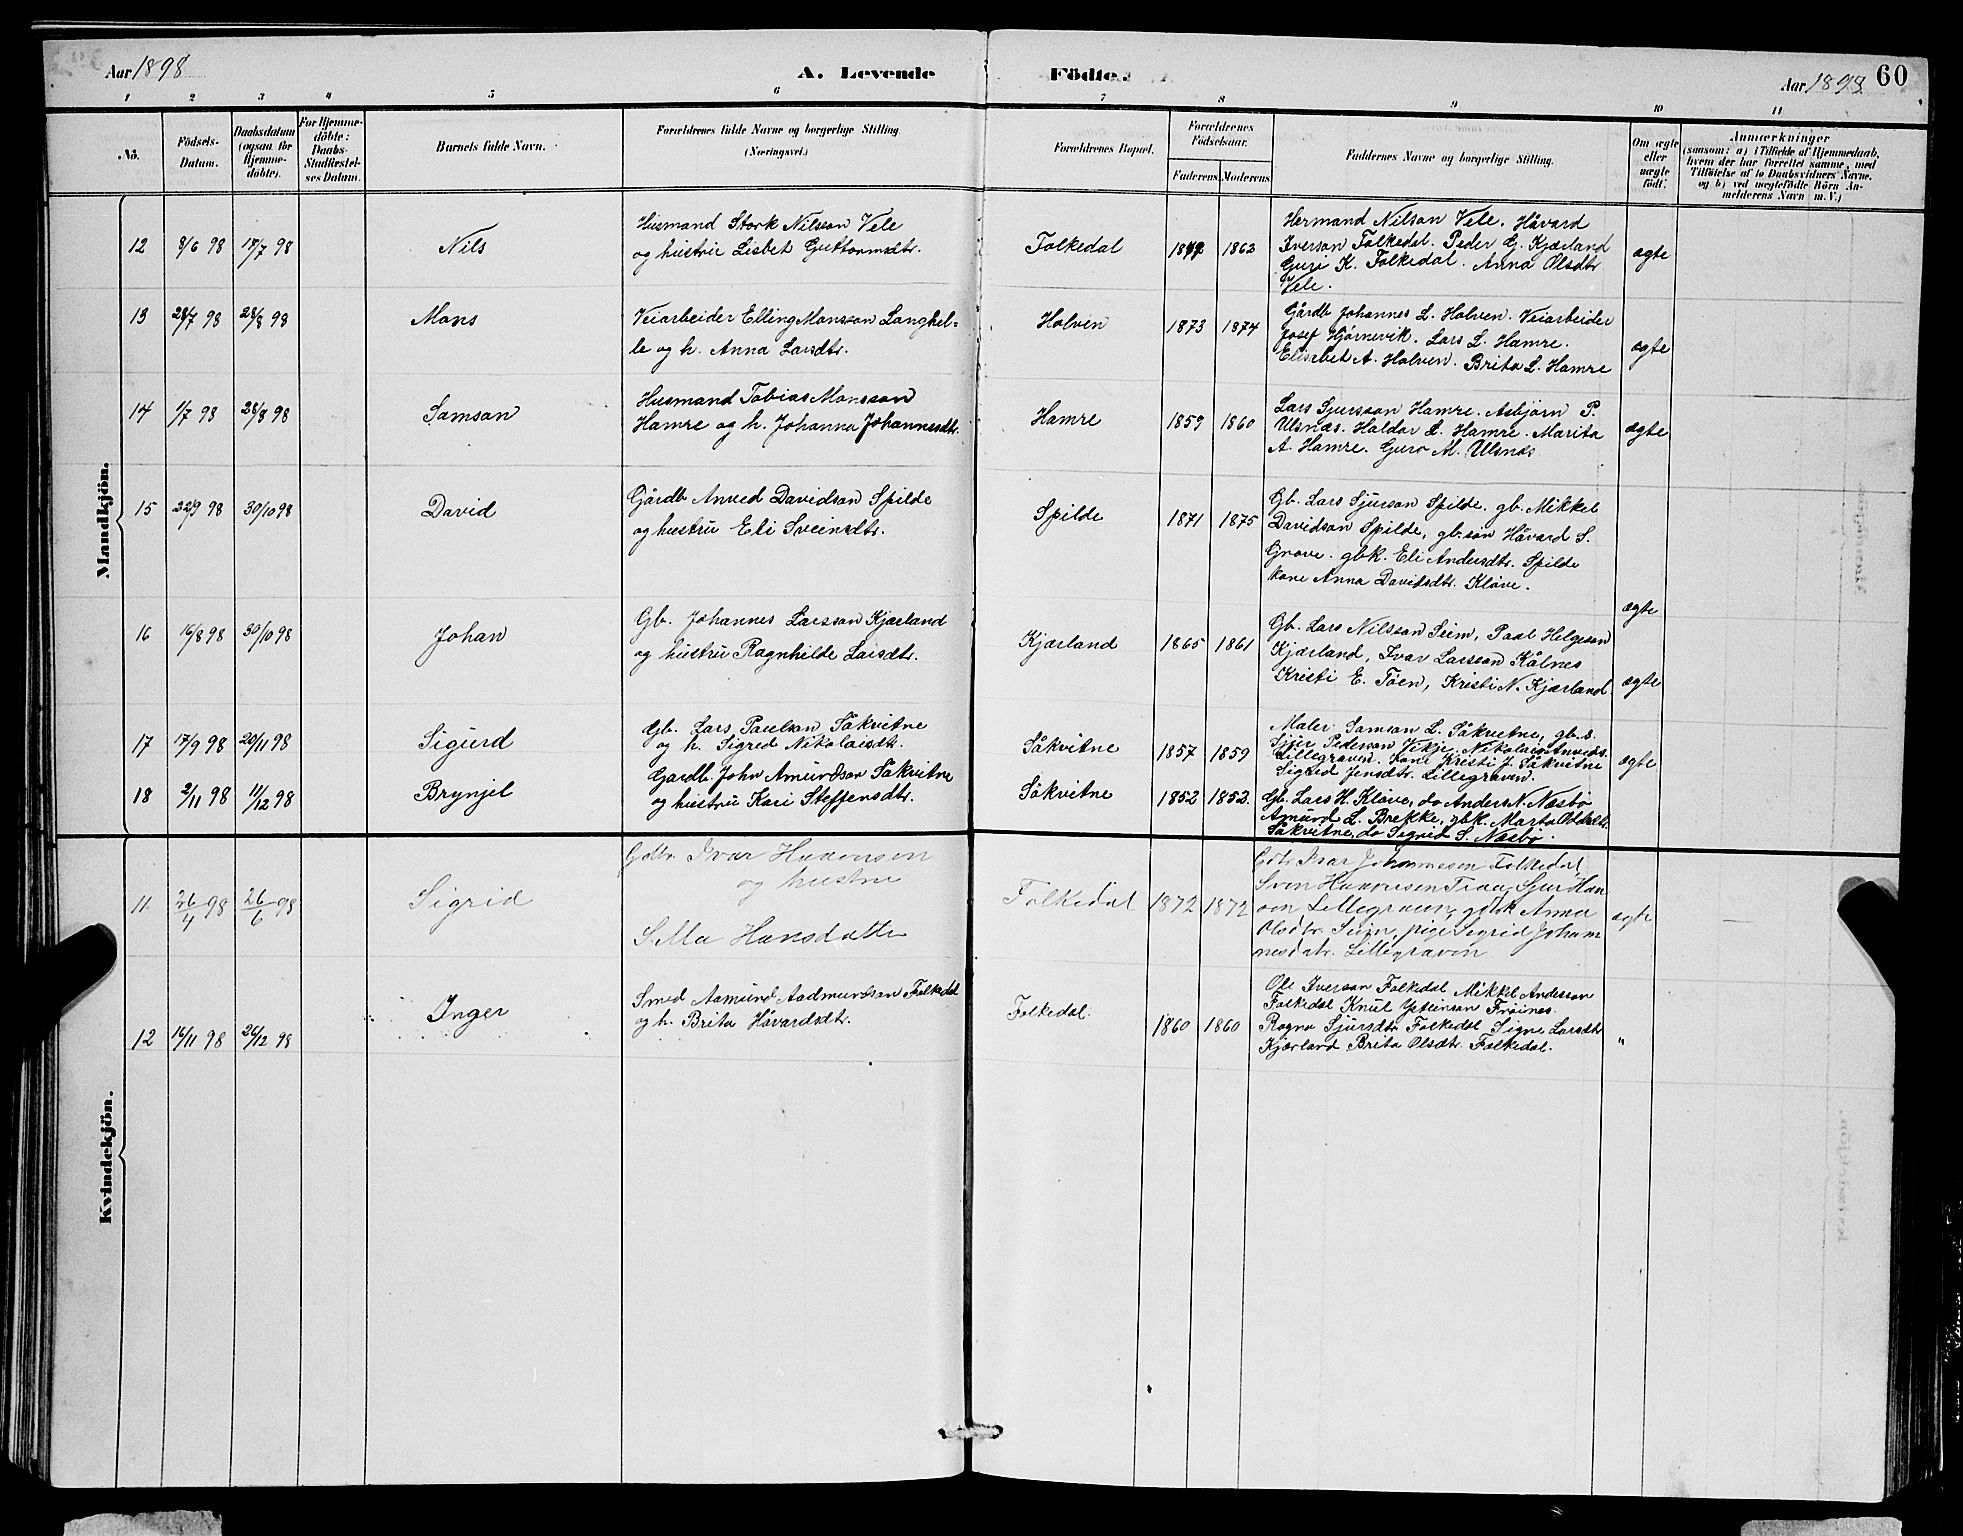 Aar 1898
A. Levende Födte.
Aar 1898
60
1 2 3 4 5 6 7 8 9 10 11
No.
Födsels-
Datum.
Daabsdatum
(ogsaa for
Hjemme-
döbte).
For Hjemme-
döbte:
Daabs-
Stadfæstel-
ses Datum.
Barnets fulde Navn.
Forældrenes fulde Navne og borgerlige Stilling.
(Næringsvei.)
Forældrenes Bopæl.
Forældrenes
Födselsaar.
Faderens Moderens
Faddernes Navne og borgerlige Stilling.
Om ægte
eller
uægte
födt.
Anmærkninger
(saasom: a) i Tilfælde af Hjemmedaab,
hvem der har forrettet samme, med
Tilföielse af to Daabsvidners Navne,
og b) ved uægtefödte Börn An-
melderens Navn m. V.)
Mandkjön.
12 8/6 98 17/7 98 Nils
Husmand Stork Nilsson Vele
og hustru Lisbet Guttormsdtr.
Folkedal 1863
Hermand Nilson Vele. Håvard
Iverson Folkedal. Peder G. Kjærland
Guri K. Folkedal. Anna Olsdtr.
Vele.
ægte
13 28/7 98 28/8 98 Mons
Veiarbeider Elling Monsson Langhel-
le og h. Anna Larsdtr.
Holven 1873 1874
Gårdb Johannes L. Holven. Veiarbeider
Josef Hjørnevik. Lars L. Hamre.
Elisabet A. Holven. Brita L. Hamre
ægte
14 1/7 98 28/8 98 Samson
Husmand Tobias Monsson
Hamre og h. Johanna Johannesdtr.
Hamre 1859 1860
Lars Sjursson Hamre. Asbjørn P.
Ulsnæs. Haldor L. Hamre. Marita
A. Hamre. Guro M. Ulsnæs
ægte
15 22/9 98 30/10 98 David
Gårdb Anved Davidson Spilde
og hustru Eli Sveinsdtr.
Spilde 1871 1875
Gb. Lars Sjurson Spilde, gb. Mikkel
Davidson Spilde, gb.søn Håvard S.
Grove. gbk. Eli Andersdtr. Spilde
kone Anna Davidsdtr. Kløve.
ægte
16 16/8 98 30/10 98 Johan
Gb. Johannes Larsson Kjærland
og hustru Ragnhilde Larsdtr.
Kjærland 1865 1861
Gb. Lars Nilsson Seim, Paal Helgeson
Kjærland, Ivar Larsson Kålnes
Kristi E. Tøen, Kristi N. Kjærland.
ægte
17 17/9 98 20/11 98 Sigurd
Gb. Lars Paulson Såkvitne
og h. Sigred Nikolaisdt.
Såkvitne 1857 1859
Maler Samson L. Såkvitne, gb.s.
Sjur Pederson Vikje. Nikolai Anveds.
Lillegraven. Kone Kristi J. Såkvitne
Sigrid Jensdtr. Lillegraven.
ægte
18 2/11 98 11/12 98 Brynjel
Gardb. John Amundson Såkvitne
og hustru Kari Steffensdtr.
Såkvitne 1852 1852.
Gb. Lars H. Kløve, do Anders N. Næsbø
Amund L. Brekke, gbk. Marta
Såkvitne, do Sigrid S. Næsbø.
Kvindekjön.
11. 26/4 98 26/6 98 Sigrid
Gdbr. Ivar
og hustru
Hansdatter
Folkedal 1872 1872
Gdbr Ivar Johannesen Folkedal,
Sven
Lillegraven, gdbk Anna
Olsdtr. Seim, pige Sigrid Johan
nesdatr. Lillegraven
ægte —
12 16/11 98 26/12 98 Inger
Smed Aamund Aadmundson Folkedal
og h. Brita Håvardsdtr.
Folkedal. 1860 1860
Ole Iverson Folkedal Mikkel Andersson
Folkedal Knut Frøines.
Ragna Sjursdtr Folkedal Signe Larsdtr
Kjærland Brita Olsdtr. Folkedal.
"